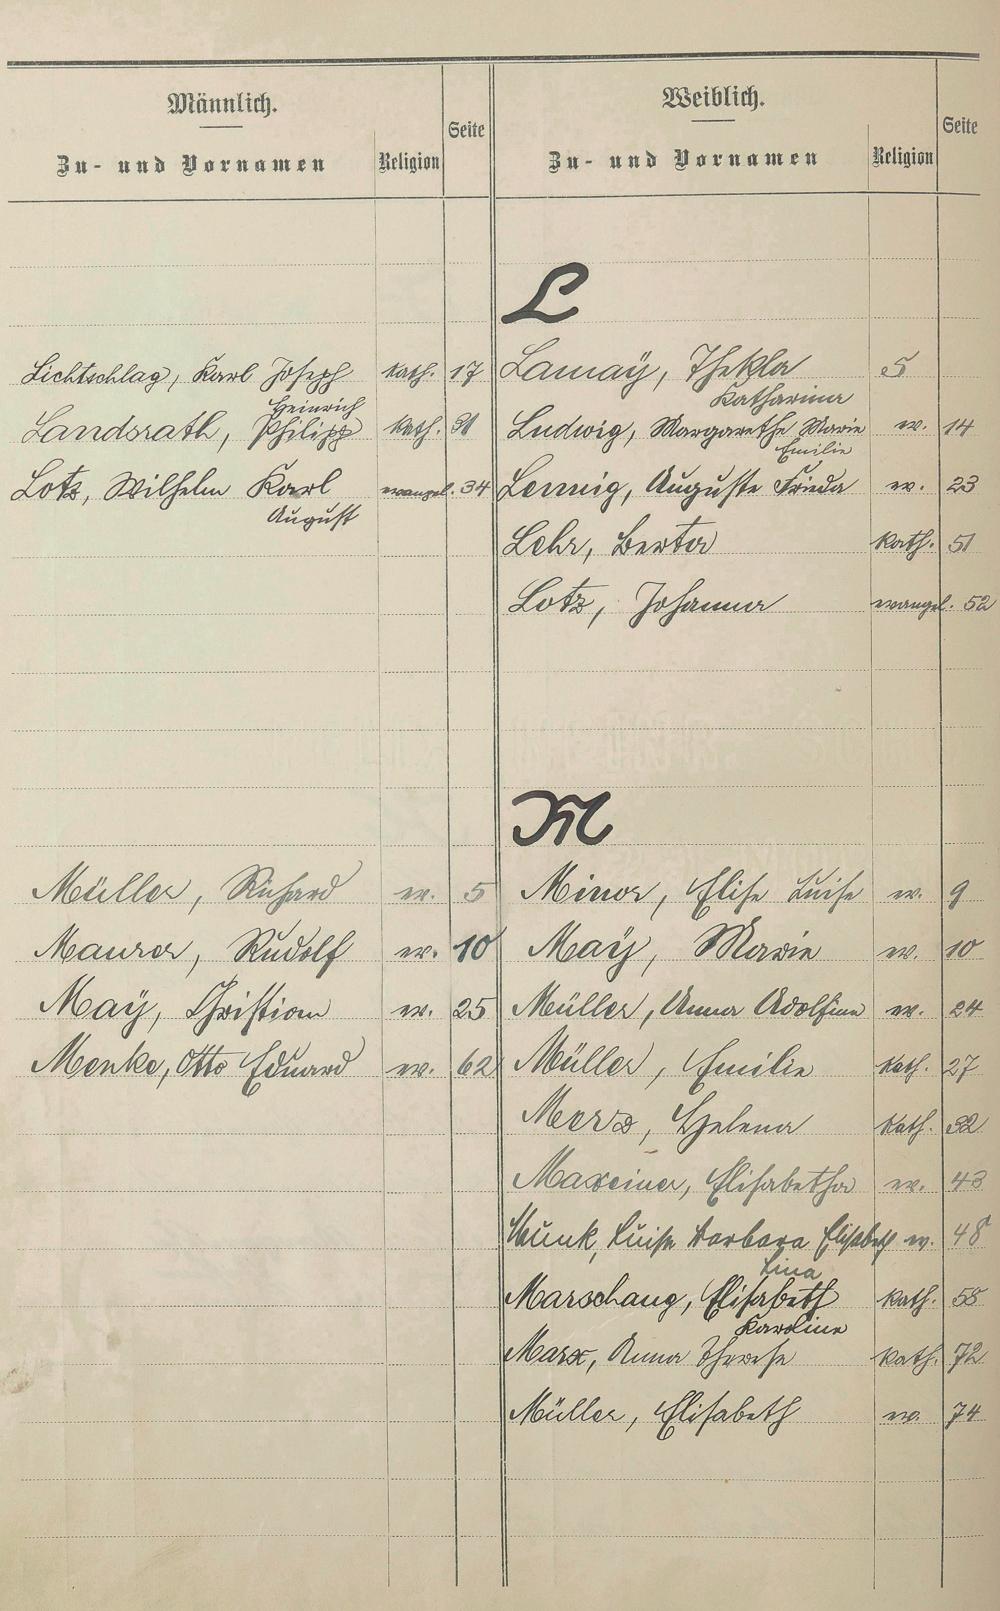 Männlich.
Zu- und Vornamen
Religion
Seite
Weiblich.
Zu- und Vornamen
Religion
Seite
L
Lichtschlag, Karl Joseph kath. 17
Landsrath, Philipp Heinrich kath. 31
Lotz, Wilhelm Karl August evangel. 34
Lamaÿ, Thekla 5
Katharina
Ludwig, Margarethe Marie ev. 14
Emilie
Lennig, Auguste Frieda ev. 23
Lehr, Berta kath. 51
Lotz, Johanna evangel. 52
M
Müller, Richard ev. 5
Maurer, Rudolf ev. 10
Maÿ, Christian ev. 25
Menke, Otto Eduard ev. 62
Minor, Elise Luise ev. 9
Maÿ, Marie ev. 10
Müller, Anna Adolfine ev. 24
Müller, Emilie kath. 27
Merz, Helena kath. 32
Maxeiner, Elisabetha ev. 43
Munk, Luise Barbara Elisabeth ev. 48
Lina
Marschang, Elisabeth kath. 55
Karoline
Marx, Anna Therese kath. 72
Müller, Elisabeth ev. 74